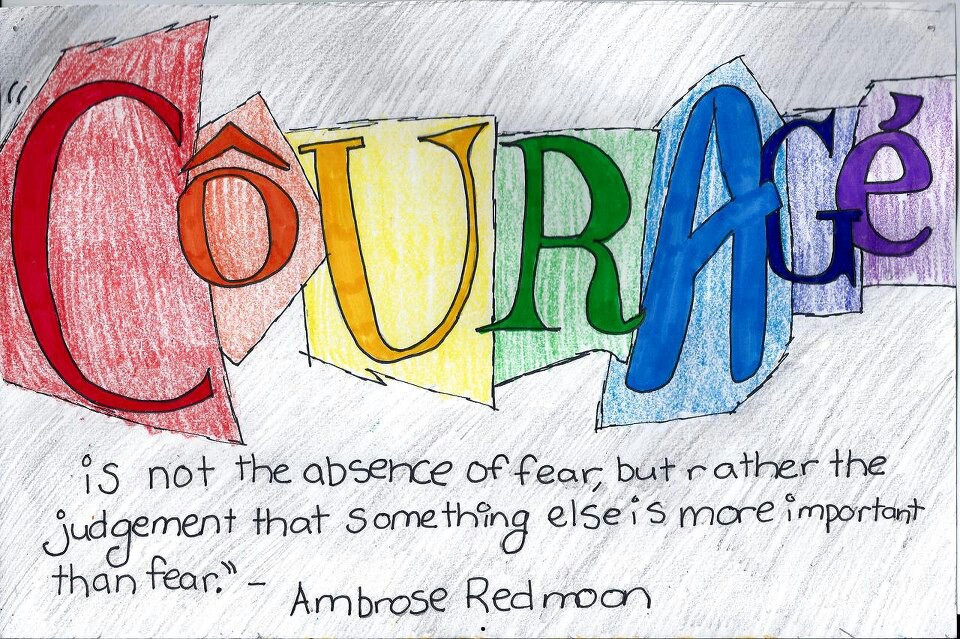 “CôURAGé
is not the absence of fear, but rather the
judgement that something else is more important
than fear." -
Ambrose Redmoon